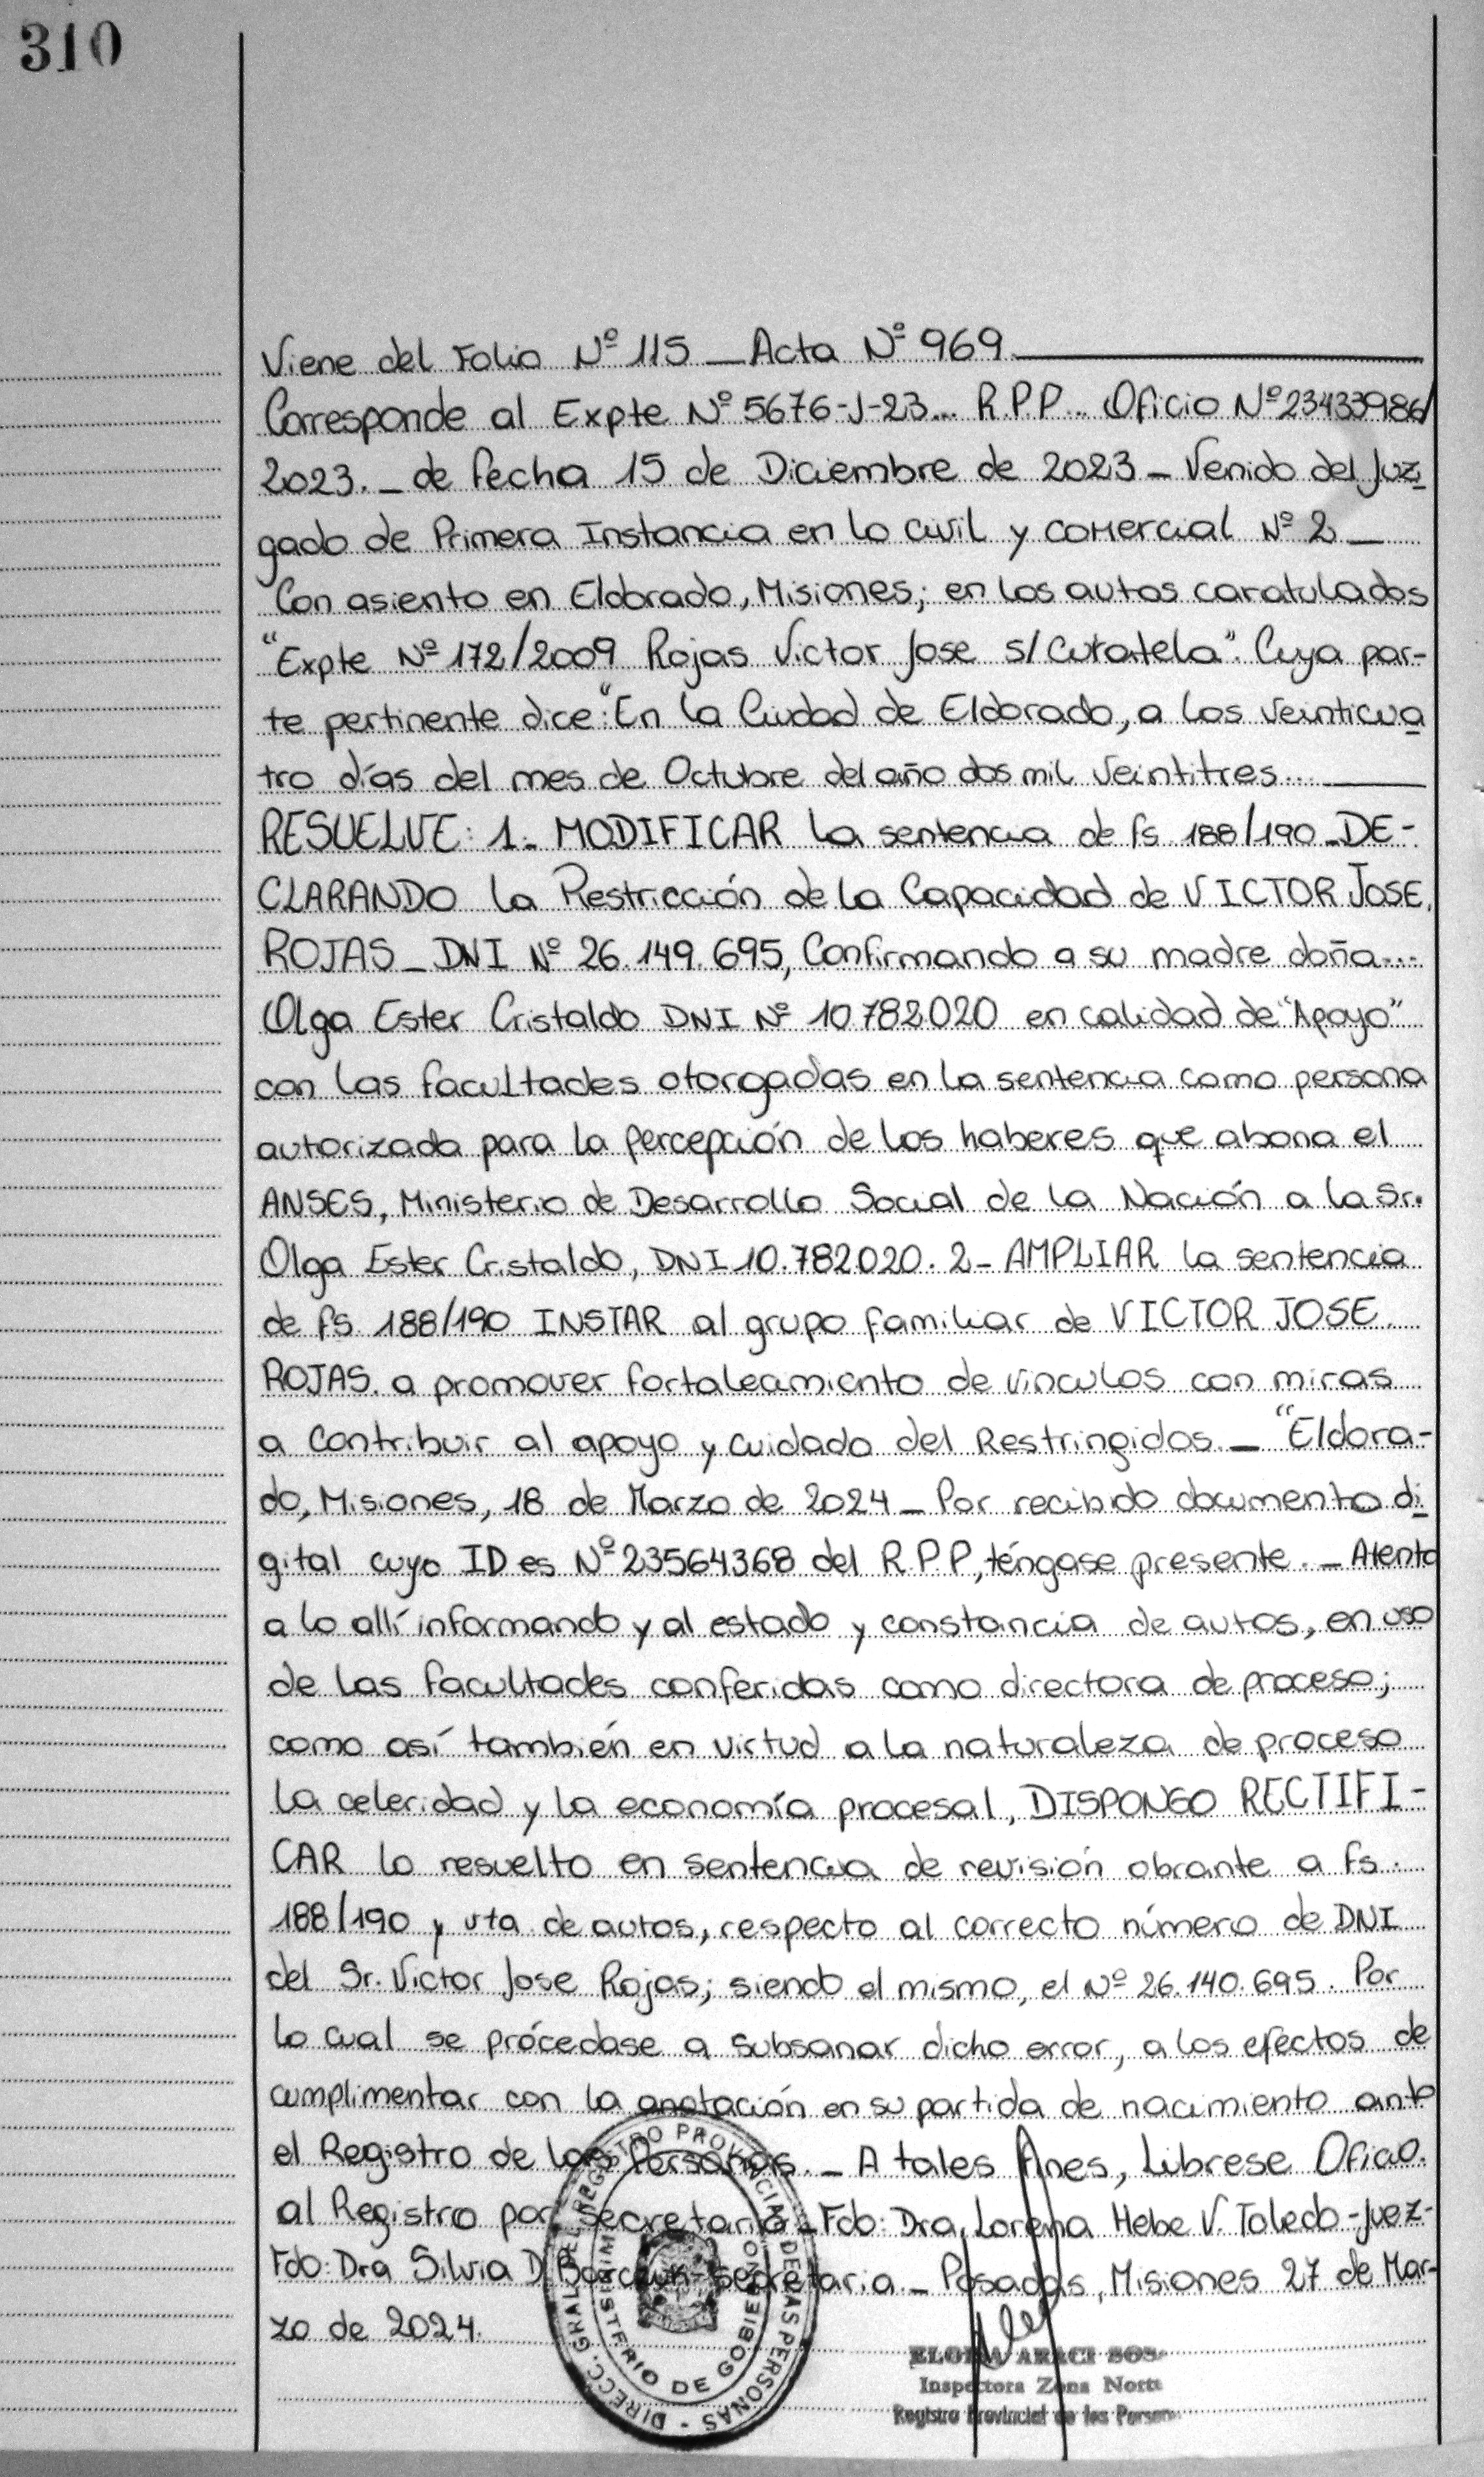 310
Viene del Folio Nº 115 _ Acta Nº 969
Corresponde al Expte Nº 5676-J-23... R.P.P... Oficio Nº 23433986/
2023. _ de fecha 15 de Diciembre de 2023 _ Venido del Juz
gado de Primera Instancia en lo Civil y Comercial Nº 2 _
Con asiento en Eldorado, Misiones; en los autos caratulados
"Expte Nº 172/2009 Rojas Victor Jose s/ Curatela". Cuya par-
te pertinente dice: "En la Ciudad de Eldorado, a los veinticua
tro días del mes de Octubre del año dos mil veintitres...
RESUELVE: 1.- MODIFICAR la sentencia de fs 188/190 _ DE-
CLARANDO la Restricción de la Capacidad de VICTOR JOSE
ROJAS _ DNI Nº 26.149.695, Confirmando a su madre doña...
Olga Ester Cristaldo DNI Nº 10.782020 en calidad de "Apoyo"
con las facultades otorgadas en la sentencia como persona
autorizada para la percepción de los haberes que abona el
ANSES, Ministerio de Desarrollo Social de la Nación a la Sr.
Olga Ester Cristaldo, DNI 10.782.020. 2- AMPLIAR la sentencia
de fs 188/190 INSTAR al grupo familiar de VICTOR JOSE
ROJAS. a promover fortaleamiento de vinculos con miras
a contribuir al apoyo y cuidado del Restringidos. _ "Eldora-
do, Misiones, 18 de Marzo de 2024 _ Por recibido documento di
gital cuyo ID es Nº 23564368 del R.P.P, téngase presente. _ Atento
a lo allí informando y al estado y constancia de autos, en uso
de las facultades conferidas como directora de proceso;
como así también en virtud a la naturaleza de proceso
la celeridad y la economía procesal, DISPONGO RECTIFI-
CAR lo resuelto en sentencia de revisión obrante a fs.
188/190 y vta de autos, respecto al correcto número de DNI
del Sr. Victor Jose Rojas; siendo el mismo, el Nº 26.140.695. Por
lo cual se prócedase a subsanar dicho error, a los efectos de
cumplimentar con la anotación en su partida de nacimiento ante
el Registro de las Personas. _ A tales fines, Librese Oficio.
al Registro por Secretaria _ Fdo: Dra. Lorena Hebe V. Toledo - Juez-
Fdo: Dra Silvia D. Secretaria _ Posadas, Misiones 27 de Mar-
zo de 2024.
DIRECC. GRAL. DEL REGISTRO PROVINCIAL DE LAS PERSONAS -
MINISTERIO DE GOBIERNO
ARACI
Inspectora Zona Norte
Registro Provincial de las Person